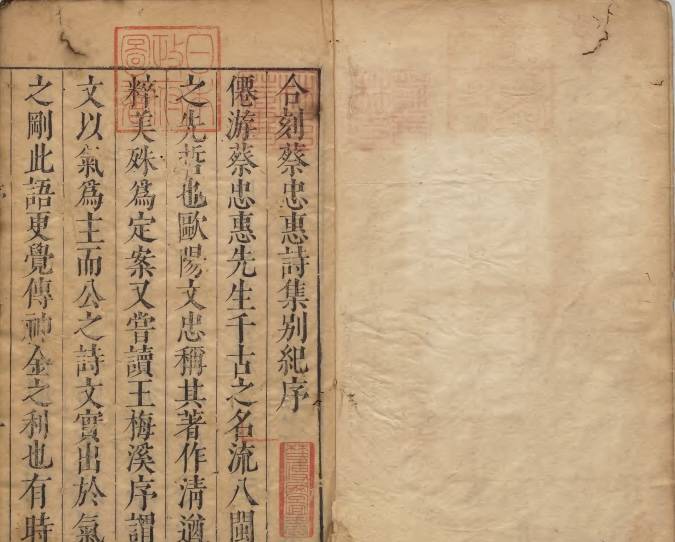 合刻蔡忠惠詩集别紀序
僊游蔡忠惠先生千古之名流八閩
之先哲也歐陽文忠稱其著作清遒
粹美殊爲定案又嘗讀王梅溪序謂
文以氣爲主而公之詩文實出於氣
之剛此語更覺傳神金之利也有時